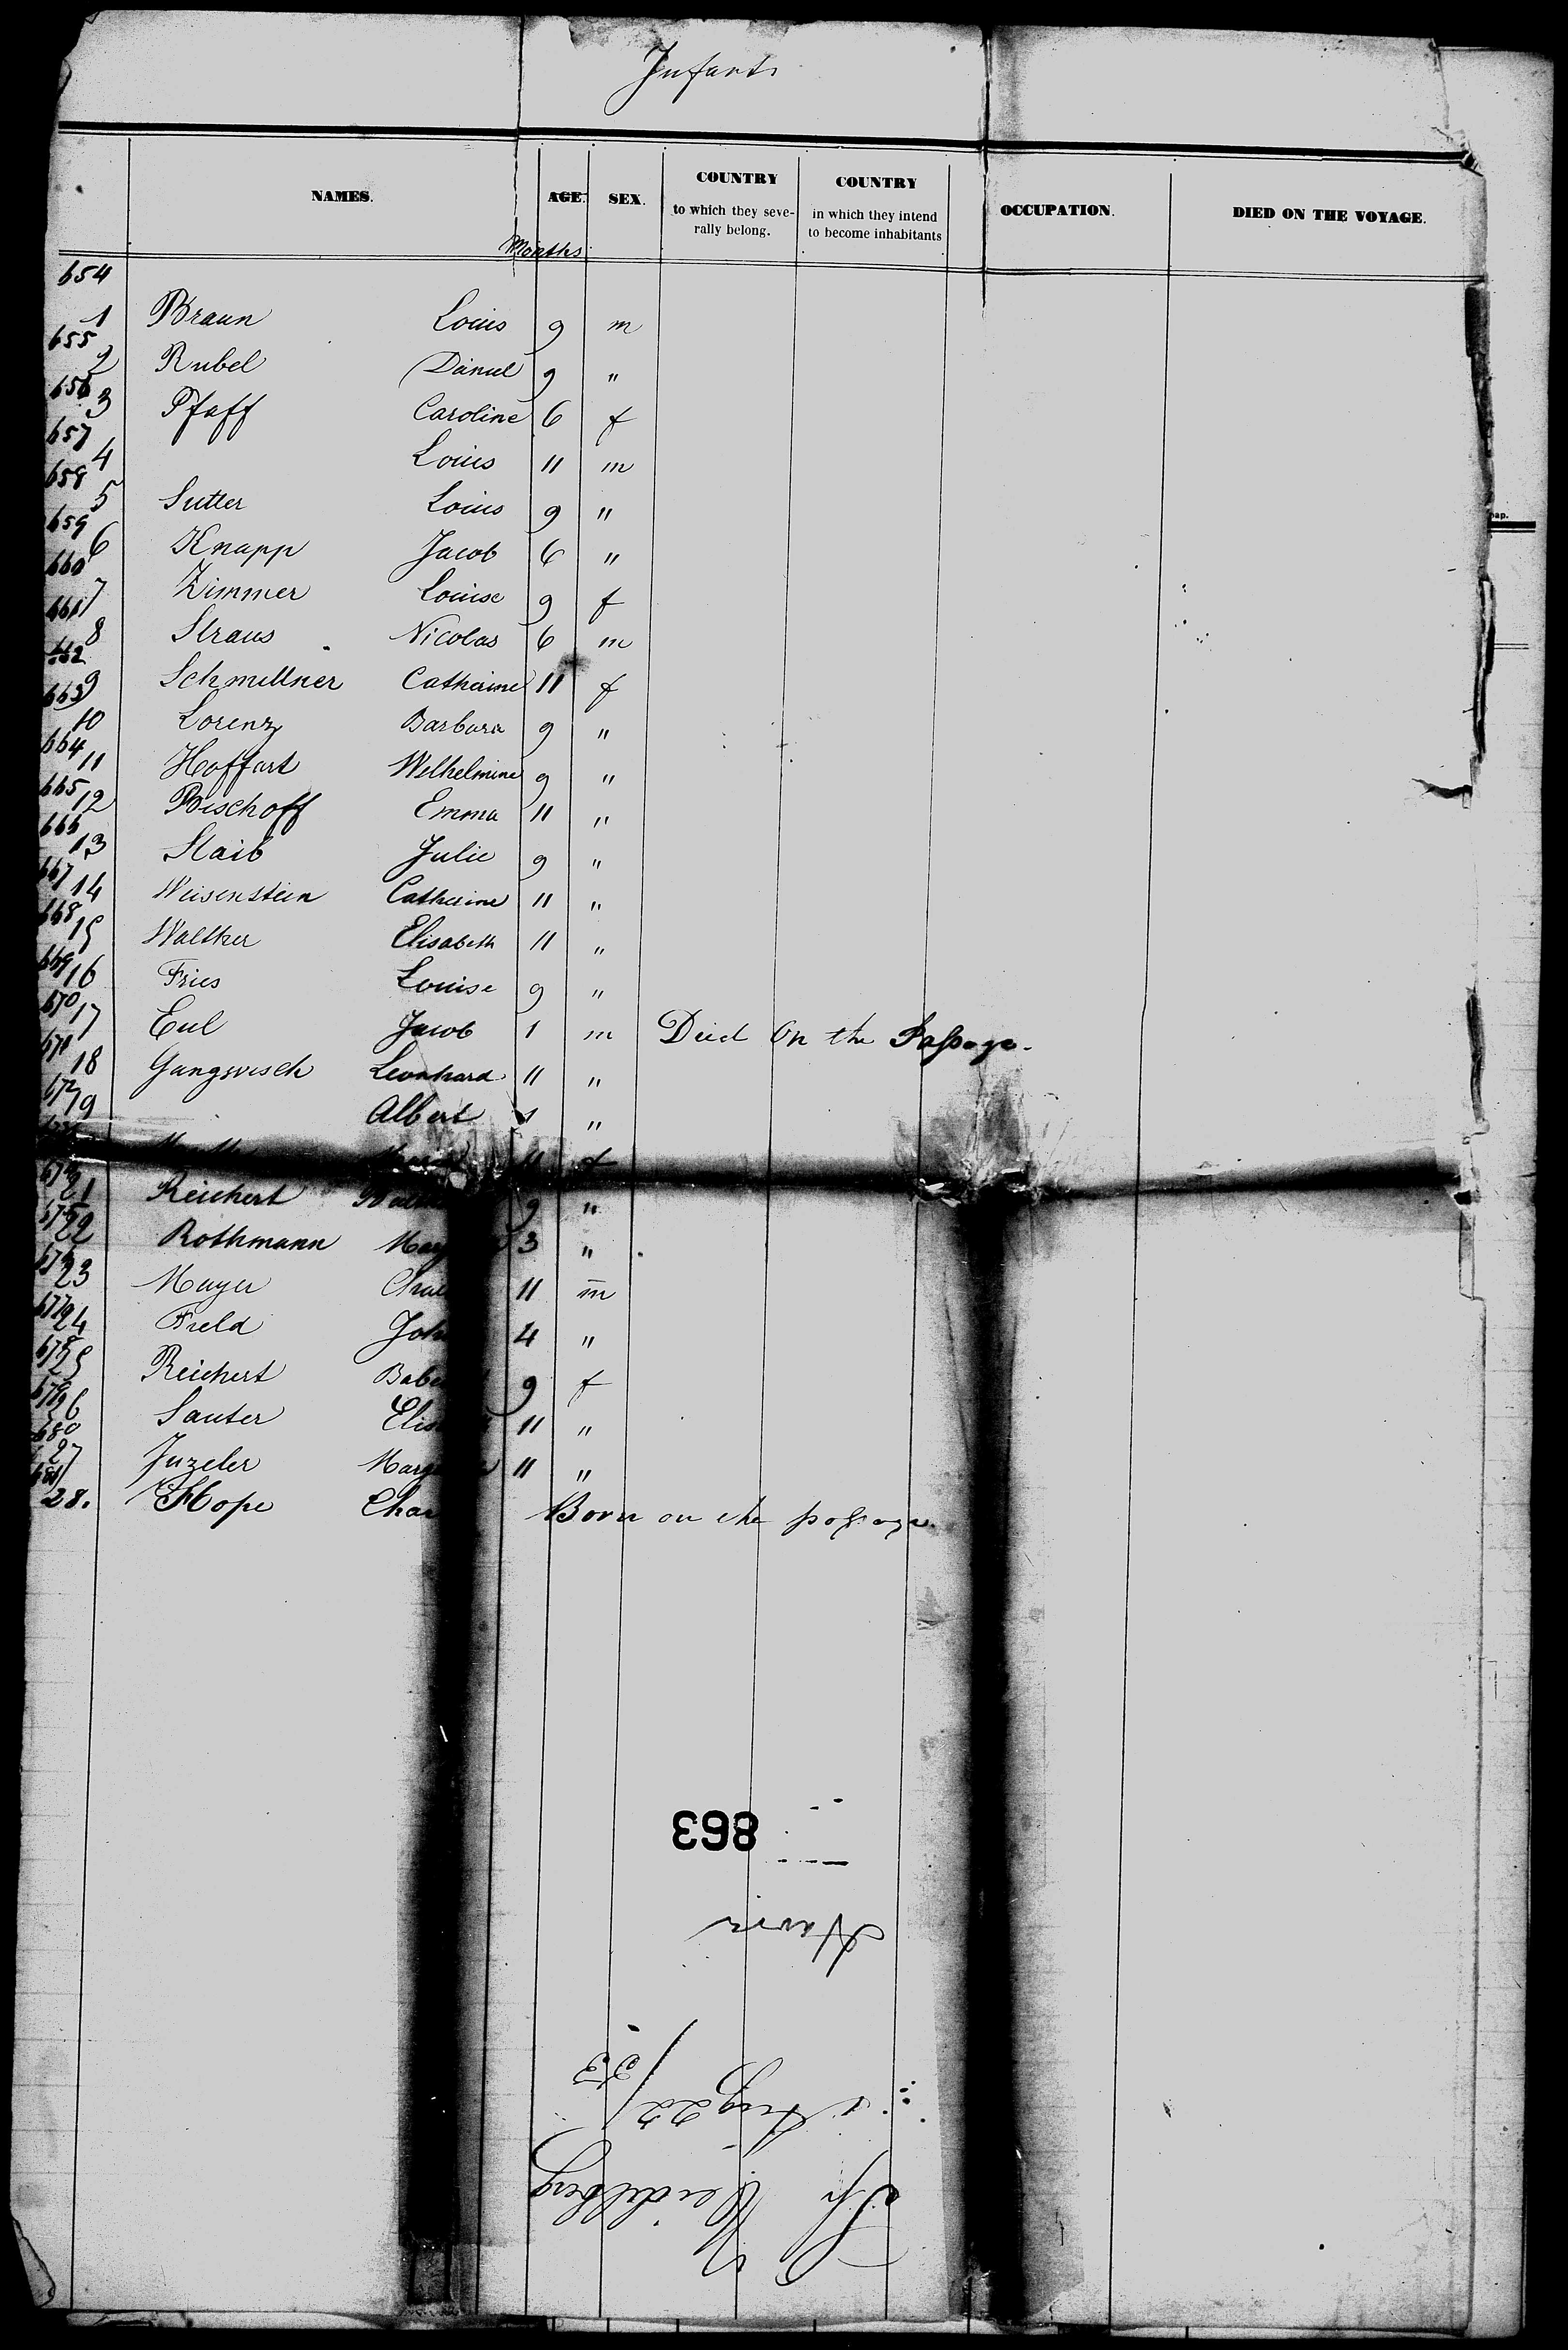 Infants
NAMES. AGE. SEX. COUNTRY to which they seve-rally belong. COUNTRY in which they intend to become inhabitants OCCUPATION. DIED ON THE VOYAGE.
Months
654
1 Braun Louis 9 m
655
2 Rubel Daniel 9 "
656
3 Pfaff Caroline 6 f
657
4 Louis 11 m
658
5 Sutter Louis 9 "
659
6 Knapp Jacob 6 "
660
7 Zimmer Louise 9 f
661
8 Straus Nicolas 6 m
662
9 Schmittner Catharine 11 f
663
10 Lorenz Barbara 9 "
664
11 Hoffart Wilhelmine 9 "
665
12 Bischoff Emma 11 "
666
13 Staib Julie 9 "
667
14 Weisenstein Catherine 11 "
668
15 Walther Elisabeth 11 "
669
16 Fries Louise 9 "
670
17 Eul Jacob 1 m Died on the Passage.
671
18 Gangwisch Leonhard 11 "
672
19 Albert 1 "
11 f
21 Reichert 9 "
675
22 Rothmann 3 "
23 Mayer 11 m
677
24 Field 4 "
678
25 Reichert 9 f
679
26 Sauter 11 "
680
27 Juzeler 11 "
681
28. Hope Born on the passage.
863
Havre
Aug 22/53
Sh Heidelberg